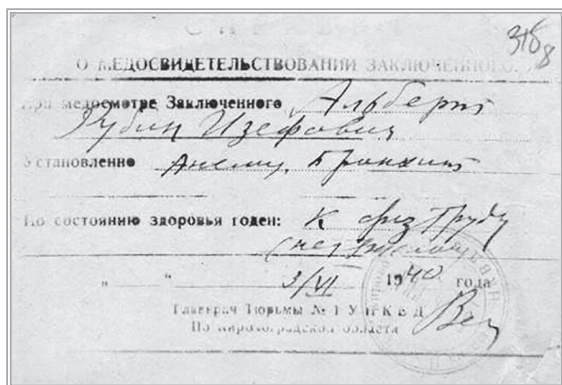 СПРАВКА
376
8
О МЕДОСВИДЕТЕЛЬСТВОВАНИИ ЗАКЛЮЧЕННОГО.
При медосмотре Заключенного Альберт
Рубин Изефович
Установленно Анемия, Бронхит
По состоянию здоровья годен: к физ труду
(не тяжелому)
" " 3/VI 1940 года
Главврач Тюрьмы № 1 УНКВД
По Кировоградской области